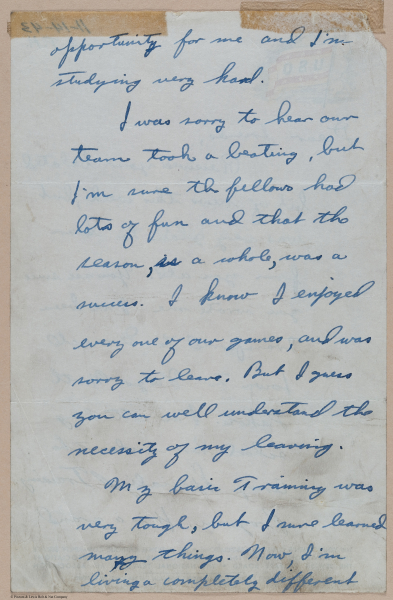 opportunity for me and I'm
studying very hard.
I was sorry to hear our
team took a beating, but
I'm sure th fellows had
lots of fun and that the
season, as a whole, was a
success. I know I enjoyed
every one of our games, and was
sorry to leave. But I guess
you can well understand the
necessity of my leaving.
My basic Training was
very tough, but I sure learned
many things. Now, I'm
living a completely different